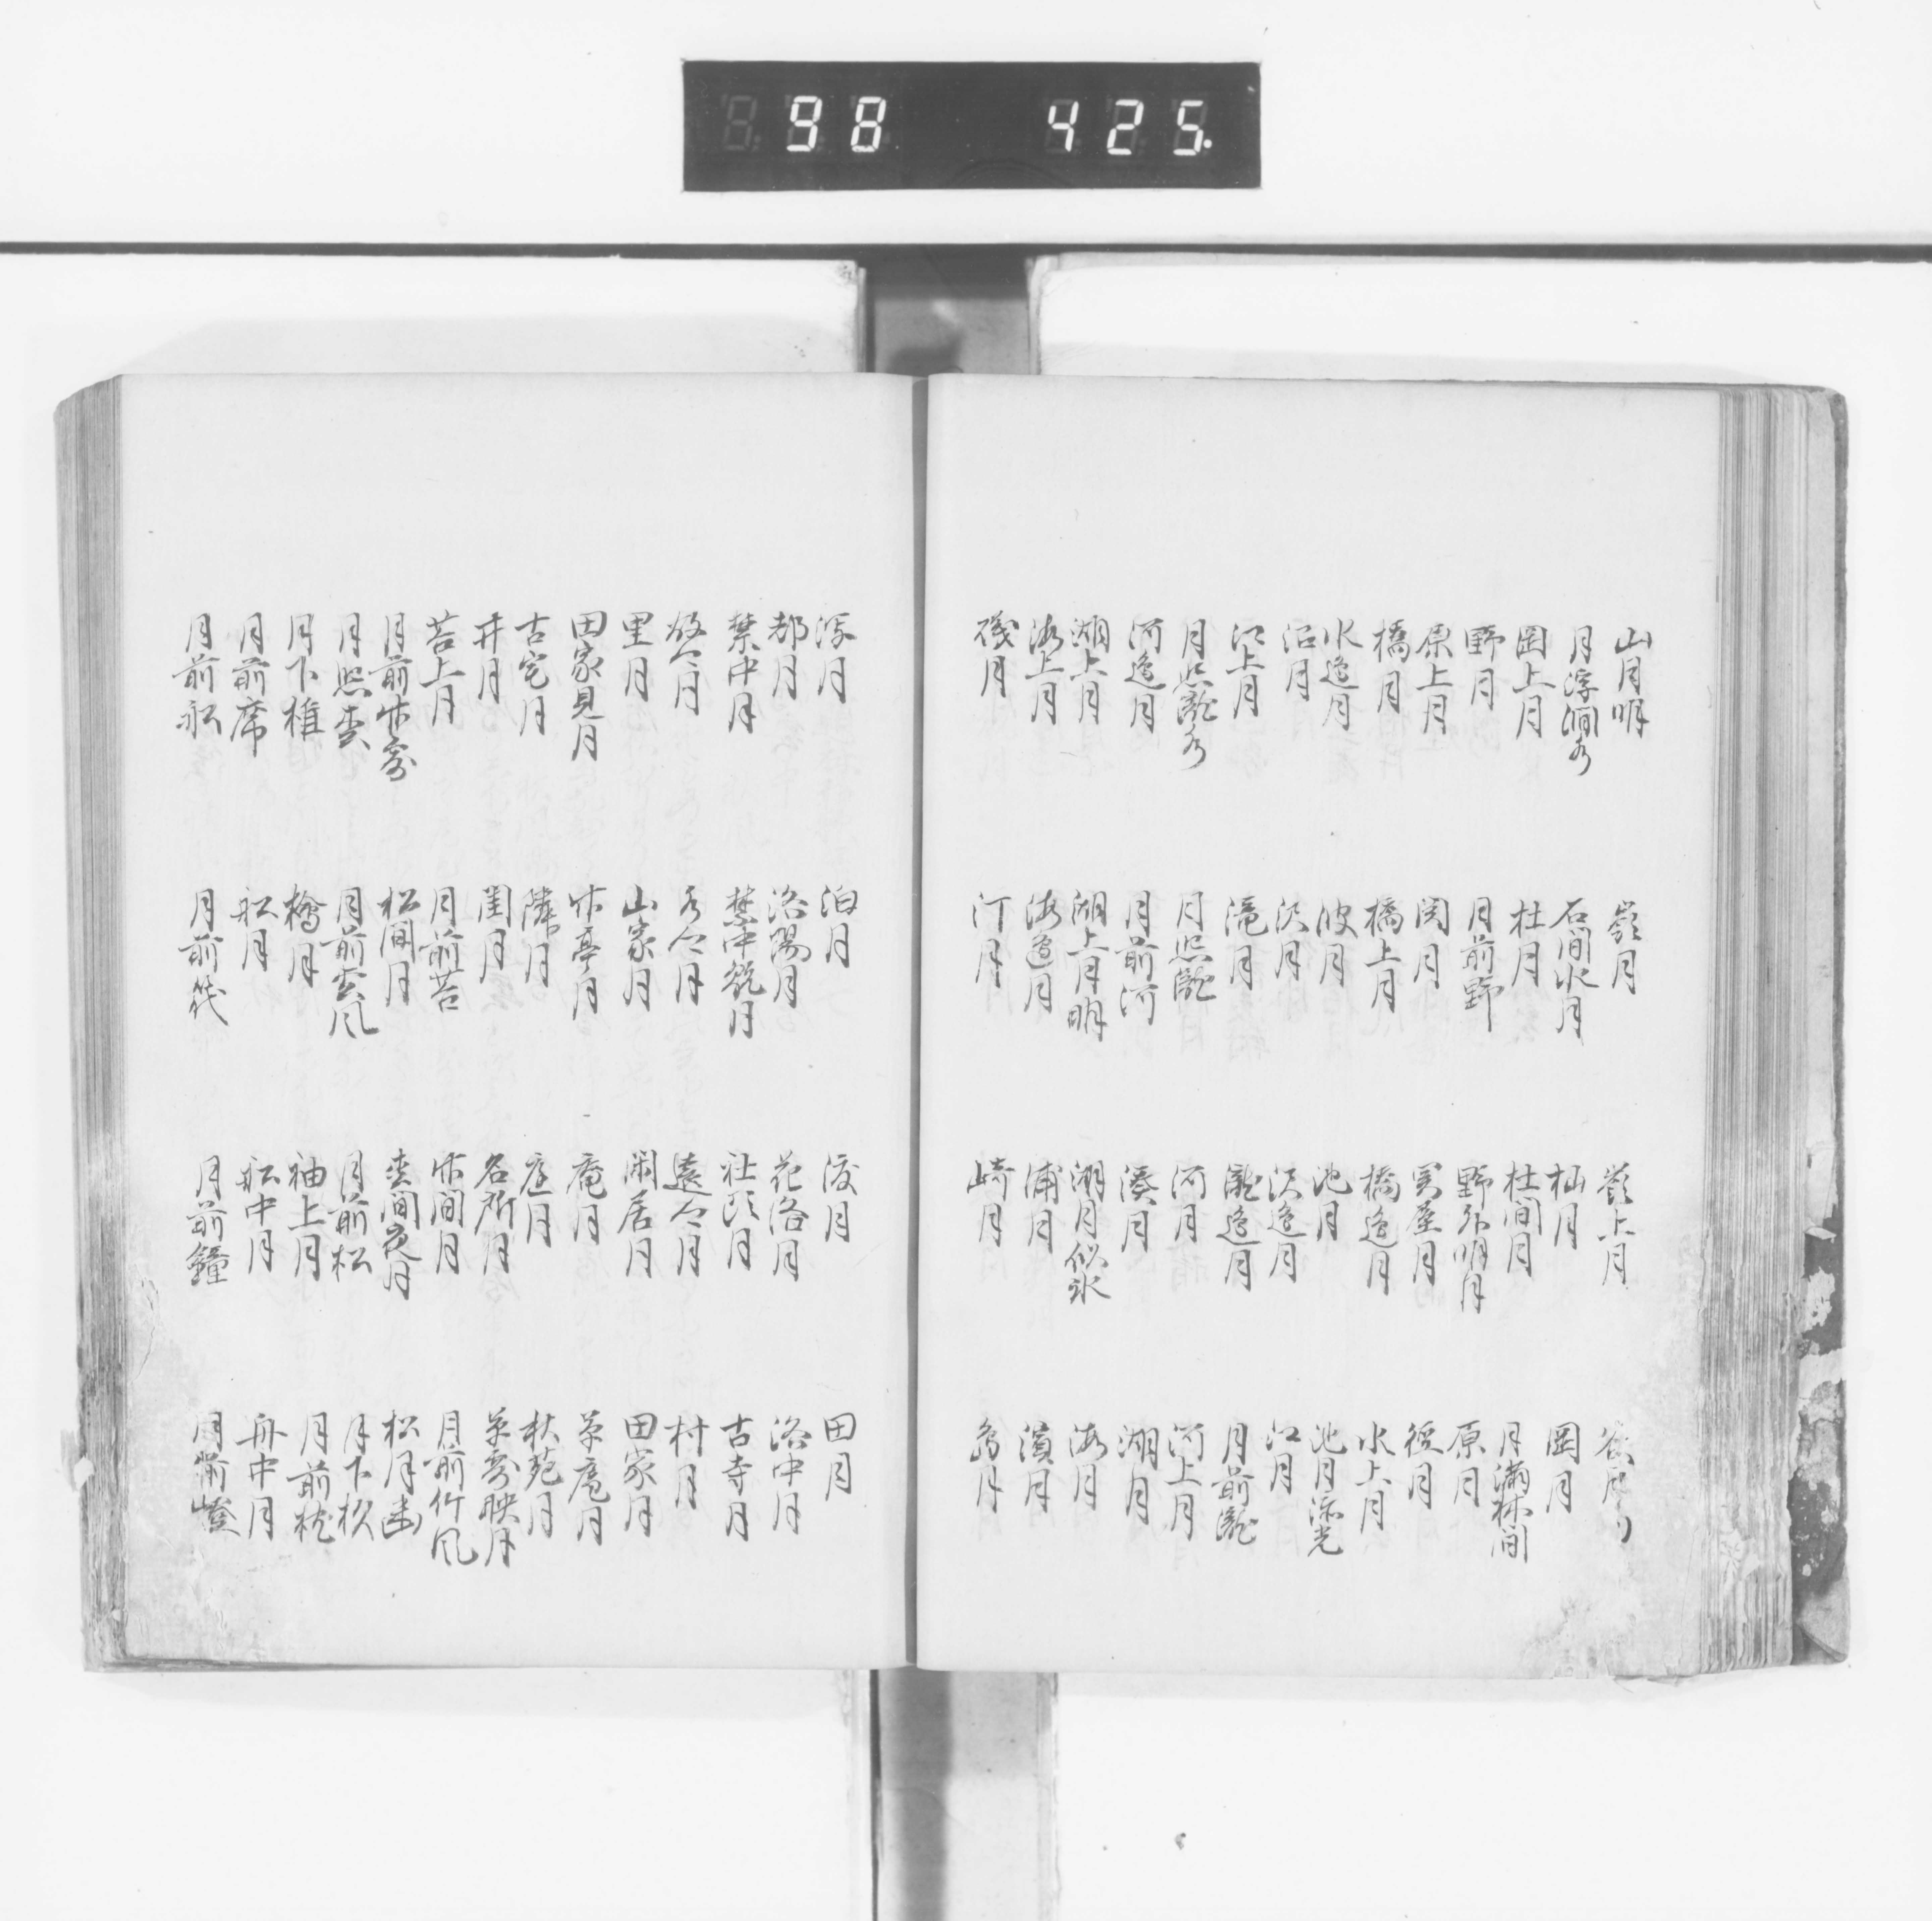 山月明　嶺月　嶺上月
月浮澗水　石間水月　杣月　岡月
岡上月　杜月　杜間月　月満林間
野月　月前野　野外明月　原月
原上月　関月　関屋月　径月
橋月　橋上月　橋邊月　水上月
水邊月　波月　池月　池月添光
沼月　沢月　沢邊月　江月
江上月　滝月　瀧邊月　月前瀧
月照瀧水　月照瀧　河月　河上月
河邊月　月前河　湊月　湖月
湖上月　湖上月明　湖月似氷　海月
海上月　海邊月　浦月　濱月
磯月　汀月　崎月　嶋月
潟月　泊月　渡月　田月
都月　洛陽月　花洛月　洛中月
禁中月　禁中翫月　社頭月　古寺月
故郷月　水郷月　遠郷月　村月
里月　山家月　閑居月　田家月
田家見月　竹亭月　庵月　草庵月
古宅月　隣月　庭月　秋苑月
井月　閨月　名所月　草露映月
苔上月　月前苔　竹間月　月前竹風
月前竹露　松間月　枩間夜月　松月幽
月照枩　月前枩風　月前松　月下
月下椎　檜月　袖上月　月前枕
月前席　舩月　舩中月　舟中月
月前舩　月前筏　月前鐘　月前燈